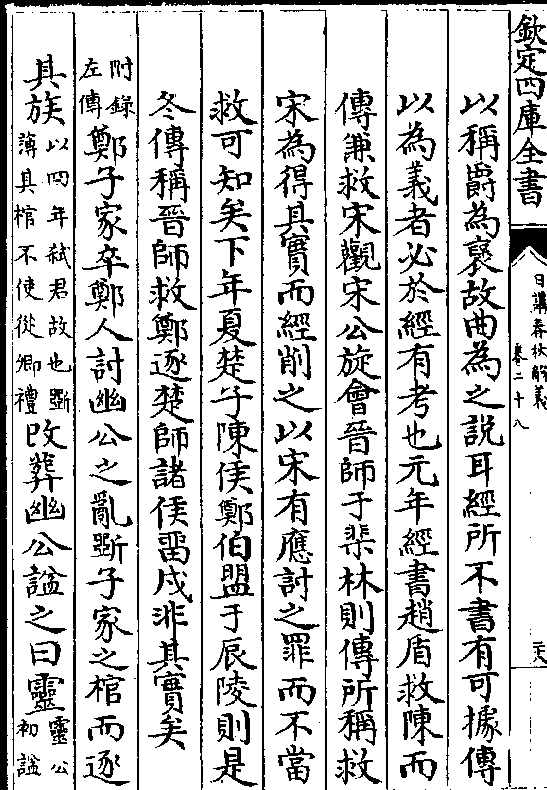 欽定四庫全書
日講春秋解義 卷二十八
以稱爵為褒故曲為之説耳經所不書有可據傳
以為義者必於經有考也元年經書趙盾救陳而
傳兼救宋觀宋公旋會晉師于棐林則傳所稱救
宋為得其實而經削之以宋有應討之罪而不當
救可知矣下年夏楚子陳侯鄭伯盟于辰陵則是
冬傳稱晉師救鄭逐楚師諸侯畱戍非其實矣
附錄左傳鄭子家卒鄭人討幽公之亂斲子家之棺而逐
其族以四年弑君故也斲薄其棺不使從卿禮改葬幽公諡之曰靈靈公初諡